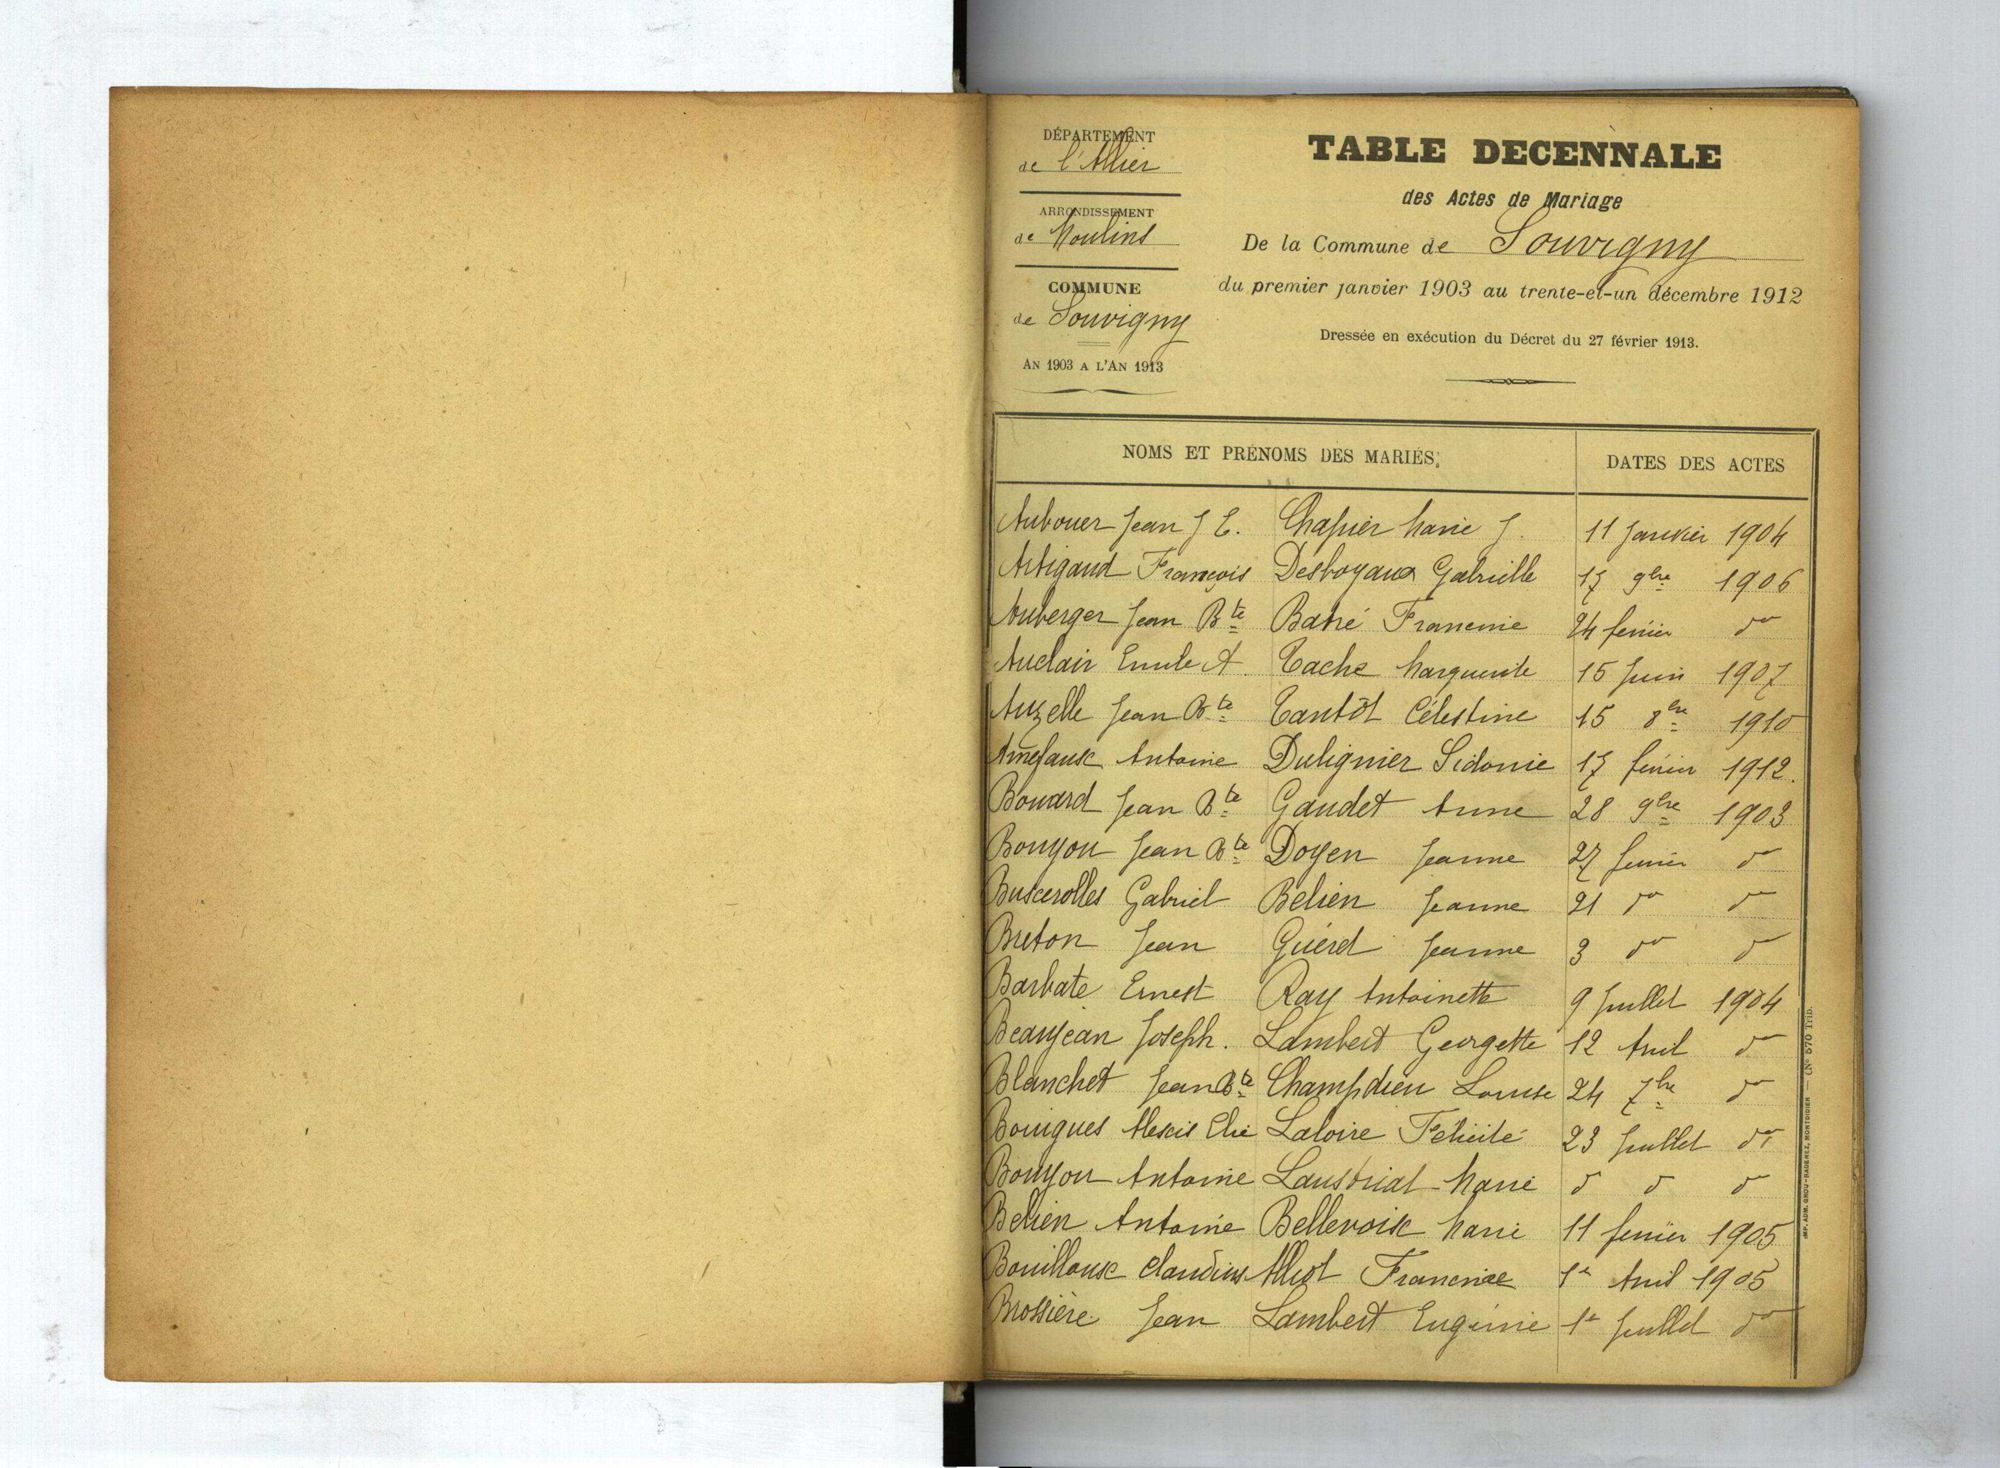 DÉPARTEMENT
de l'Allier
ARRONDISSEMENT
de Moulins
COMMUNE
de Souvigny
AN 1903 A L'AN 1913
TABLE DECENNALE
des Actes de Mariage
De la Commune de Souvigny
du premier janvier 1903 au trente-et-un décembre 1912
Dressée en exécution du Décret du 27 février 1913.
NOMS ET PRÉNOMS DES MARIÉS. DATES DES ACTES
Aubouer Jean J E. Chapier Marie J. 11 Janvier 1904
Artigaud François Desboyaux Gabrielle 17 9bre 1906
Auberger Jean Bte Barré Francine 24 février do
Auclair Emile A. Tache Marguerite 15 Juin 1907
Auzelle Jean Bte Tantôt Célestine 15 8bre 1910
Antoine Dulignier Sidonie 17 février 1912.
Bouard Jean Bte Gaudet Anne 28 9bre 1903
Bouyou Jean Bte Doyen Jeanne 27 février do
Buscerolles Gabriel Belien Jeanne 21 do do
Breton Jean Guérd Jeanne 3 do do
Barbate Ernest Ray Antoinette 9 Juillet 1904
Beaujean Joseph. Lambert Georgette 12 Avril do
Blanchet Jean Bte Champdieu Louise 24 7bre do
Bouigues Alexis Elie Laloire Félicité 23 Juillet do
Bouyou Antoine Laustriat Marie d d d
Belien Antoine Bellevoix Marie 11 février 1905
Bouilloux Claudius Alliot Francine 1e Avril 1905
Brossière Jean Lambert Eugénie 1e Juillet do
IMP. ADM. GROU-RADENEZ, MONTDIDIER — (No 570 Trib.